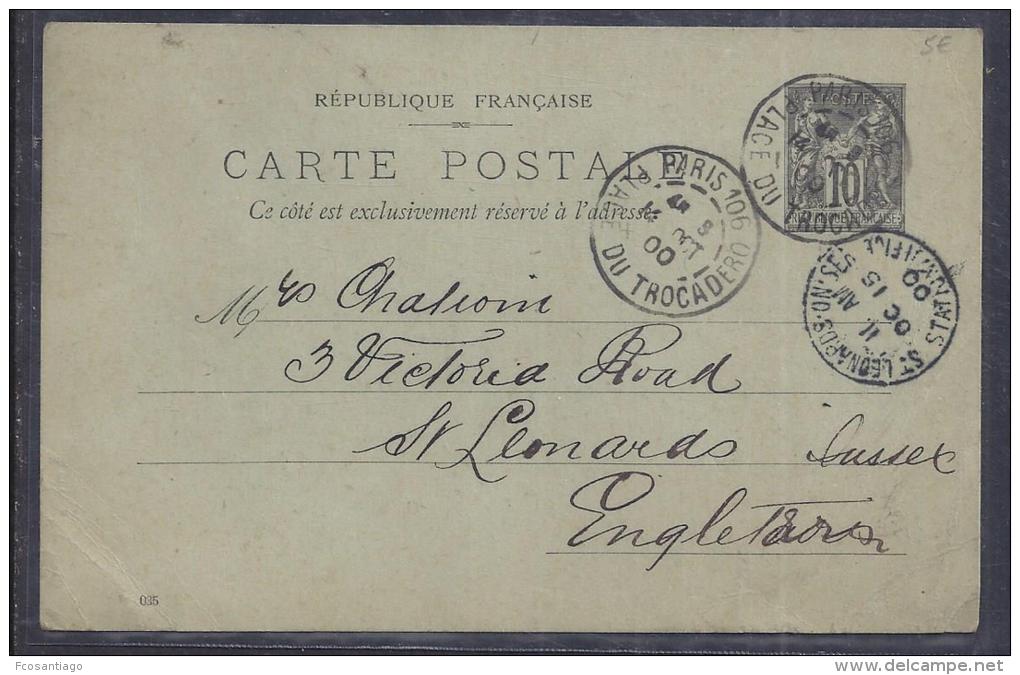 5€
RÉPUBLIQUE FRANÇAISE
CARTE POSTALE
Ce côté est exclusivement réservé à l'adresse.
POSTE
10
RÉPUBLIQUE FRANÇAISE
PARIS 106
PLACE DU TROCADERO
PARIS 106
5
14
00
PLACE DU TROCADERO
ST LEONARDS-ON-SEA
11 AM
OC 15
00
Mrs
3 Victoria Road
St Leonards Sussex
035
Fcosantiago
www.delcampe.net